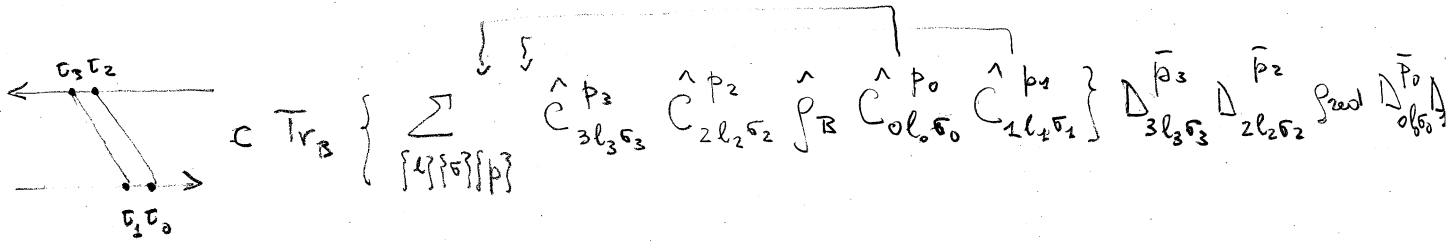 τ₃ τ₂
c Tr_B { Σ_{{l}{σ}{p}} Ĉ^{p₃}_{3l₃σ₃} Ĉ^{p₂}_{2l₂σ₂} ρ̂_B Ĉ^{p₀}_{0l₀σ₀} Ĉ^{p₁}_{1l₁σ₁} } D^{p̄₃}_{3l₃σ₃} D^{p̄₂}_{2l₂σ₂} ρ_{red} D^{p̄₀}_{0l₀σ₀} D
τ₁ τ₀